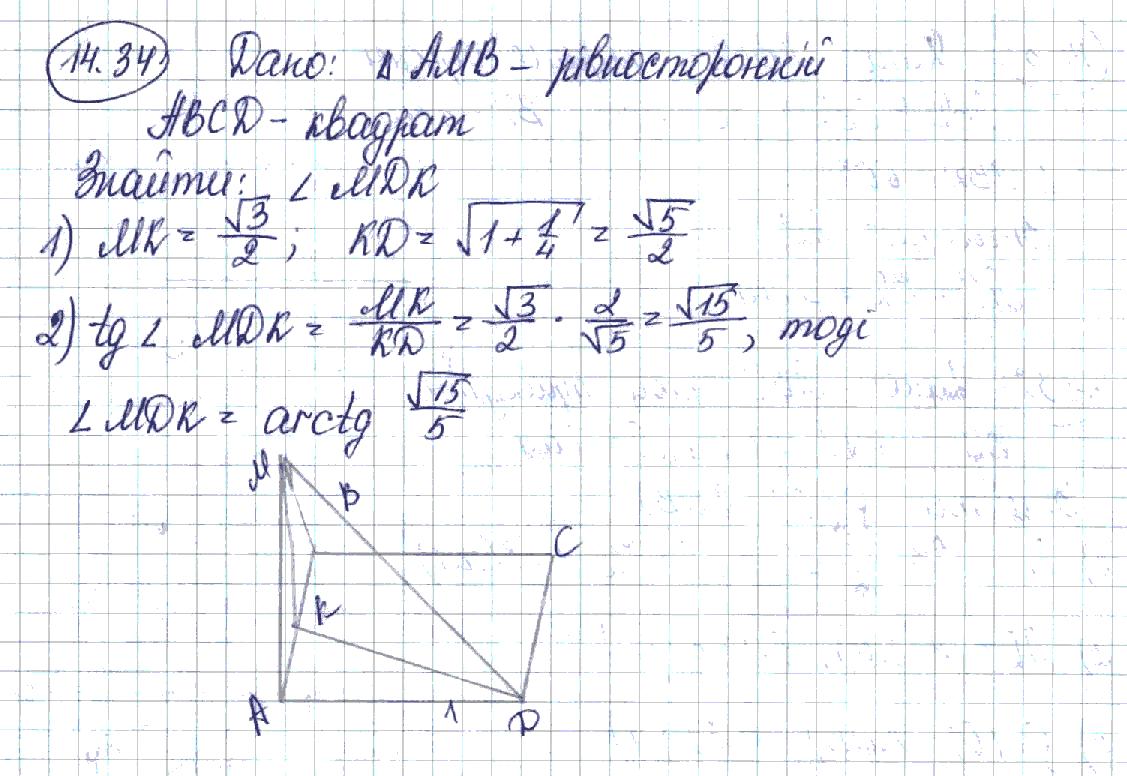 14.34 Дано: Δ AMB – рівносторонній
ABCD – квадрат
Знайти: ∠ MDK
1) MK = √3/2; KD = √(1 + 1/4) = √5/2
2) tg ∠ MDK = MK/KD = √3/2 · 2/√5 = √15/5, тоді
∠ MDK = arctg √15/5
M
B
C
K
A
1
D